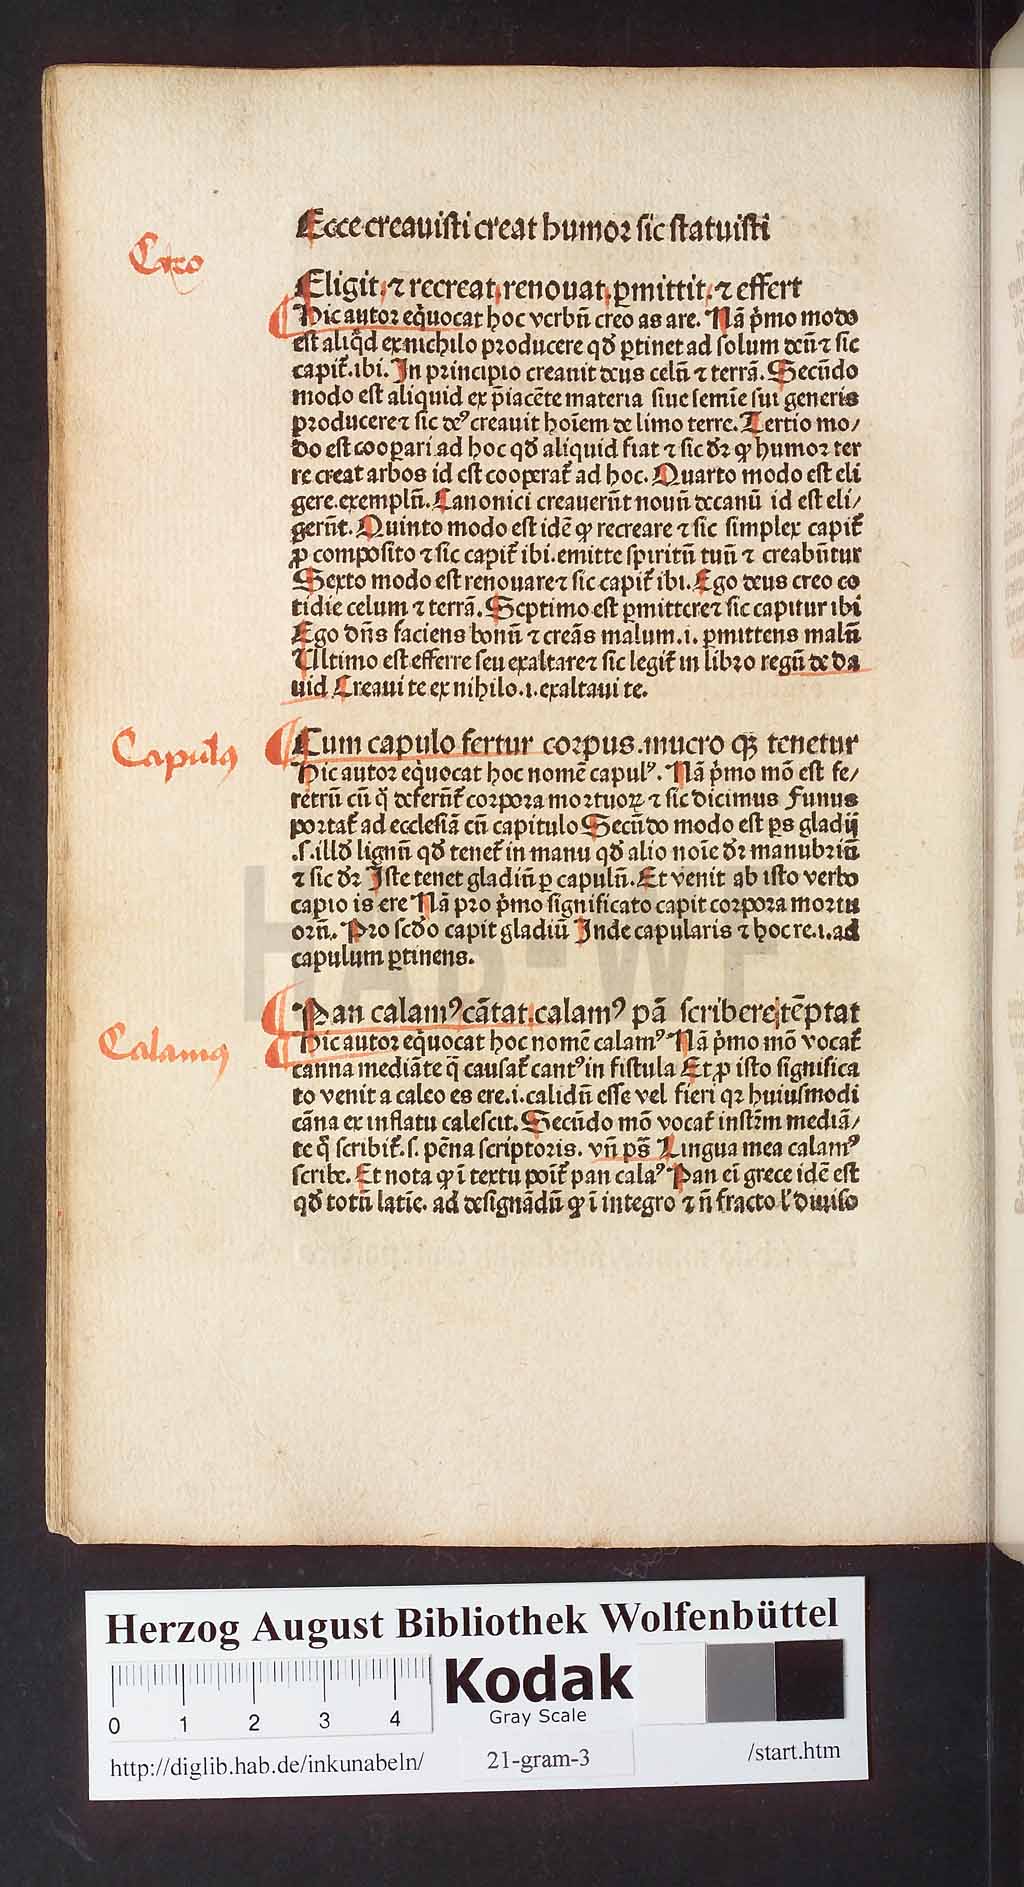 Ecce creauisti creat humoꝛ sic statuisti
Creo
Eligit, ⁊ recreat, renouat, ꝑmittit, ⁊ effert
Hic autoꝛ eq̇uocat hoc verbū creo as are. Nā ṗmo modo
est aliq̇d ex nichilo pꝛoducere qđ ꝑtinet ad solum deū ⁊ sic
capit̄. ibi. In pꝛincipio creauit deus celū ⁊ terrā. Secūdo
modo est aliquid ex p̄iacēte materia siue semīe sui generis
pꝛoducere ⁊ sic deꝰ creauit hoīem de limo terre. Tertio mo/
do est cooꝑari ad hoc qđ aliquid fiat ⁊ sic dꝛ ꝙ humoꝛ ter
re creat arbos id est cooperat̄ ad hoc. Quarto modo est eli
gere. exemplū. Canonici creauerūt nouū decanū id est eli/
gerūt. Quinto modo est idē ꝙ recreare ⁊ sic simplex capit̄
ꝓ composito ⁊ sic capit̄ ibi. emitte spiritū tuū ⁊ creabūtur
Sexto modo est renouare ⁊ sic capit̄ ibi. Ego deus creo co
tidie celum ⁊ terrā. Septimo est ꝑmittere ⁊ sic capitur ibi
Ego dn̄s faciens bonū ⁊ creās malum. i. ꝑmittens malū
Ultimo est efferre seu exaltare ⁊ sic legit̄ in libꝛo regū de da
uid Creaui te ex nihilo. i. exaltaui te.
Capulꝰ
Cum capulo fertur coꝛpus. mucro qꝫ tenetur
Hic autoꝛ eq̇uocat hoc nomē capulꝰ. Nā ṗmo mō est fe/
retrū cū q̇ deferūt̄ coꝛpoꝛa moꝛtuoꝝ ⁊ sic dicimus Funus
poꝛtat̄ ad ecclesiā cū capitulo Secūdo modo est ꝑs gladij
.s. illđ lignū qđ tenet̄ in manu qđ alio noīe dꝛ manubꝛiū
⁊ sic dꝛ Iste tenet gladiū ꝑ capulū. Et venit ab isto verbo
capio is ere Nā pꝛo ṗmo significato capit coꝛpoꝛa moꝛtu
oꝛū. Pꝛo scđo capit gladiū Inde capularis ⁊ hoc re. i. ad
capulum ꝑtinens.
Pan calamꝰ cātat, calamꝰ pā scribere tēptat
Calamꝰ
Hic autoꝛ eq̇uocat hoc nomē calamꝰ Nā ṗmo mō vocat̄
canna mediāte q̄ causat̄ cantꝰ in fistula Et ꝓ isto significa
to venit a caleo es ere. i. calidū esse vel fieri qꝛ huiusmodi
cāna ex inflatu calescit. Secūdo mō vocat̄ instr̄m mediā/
te q̇ scribit̄. s. pēna scriptoꝛis. vn̄ ps̄ Lingua mea calamꝰ
scribe. Et nota ꝙ ī textu poīt̄ pan calaꝰ Pan eī grece idē est
qđ totū latīe. ad designādū ꝙ ī integro ⁊ n̄ fracto l' diuiso
HAB-WF
Herzog August Bibliothek Wolfenbüttel
0 1 2 3 4
Kodak
Gray Scale
http://diglib.hab.de/inkunabeln/
21-gram-3
/start.htm